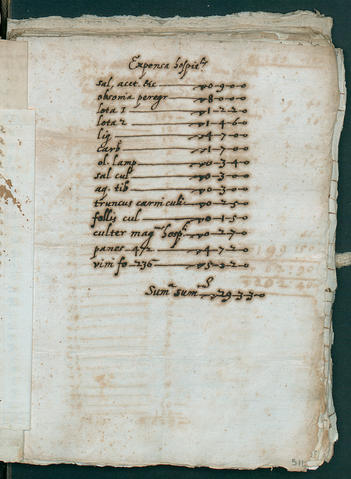 Expensa hospit.
sal, acet. etc — 0-9-0-0
obsonia peregr — 8-0-0-0
lota 1 — 1-2-2-0
lota 2 — 1-4-6-0
lig — 4-7-0-0
carb — 1-7-0-0
ol. lamp — 0-3-4-0
sal cub — 0-3-0-0
aq. tib — 0-3-0-0
truncus carni culi — 0-2-5-0
follis cul — 0-1-5-0
culter mag hosp — 0-2-7-0
panes 472 — 4-7-2-0
vini fo 236 — 5-3-2-0
Sum sum — 29-3-3-0